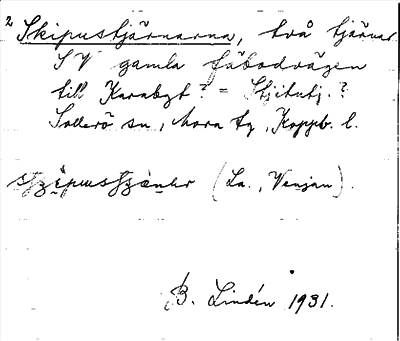 2 Skipustjärnarna, två tjärnar
S V gamla fäbodvägen
till Karabgt? = Stjitutj.?
Sollerö sn., Mora tg, Koppb. l.
(La., Venjan).
B. Lindén 1931.